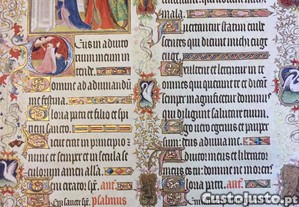 Eus in adiuto
rium meum in
tende.
omine ad adiuuandū
me festina.
loria patri et filio et spi
sancto.
cut erat in principio
et semper et in secula se
culorum amen alla.
eni creator. ant.
psalmus
mala.
uertantur statim erube
scentes qui dicunt michi euge
euge.
xultent et letentur in te
omnes qui querunt te et dicāt
semper magnificetur dominus
qui diligunt salutare tuum.
go uero egenus et pauper
sum deus adiuua me.
diutor meus et liberator
meus es tu domine ne moreris
loria patri. ant.
CustoJusto.pt